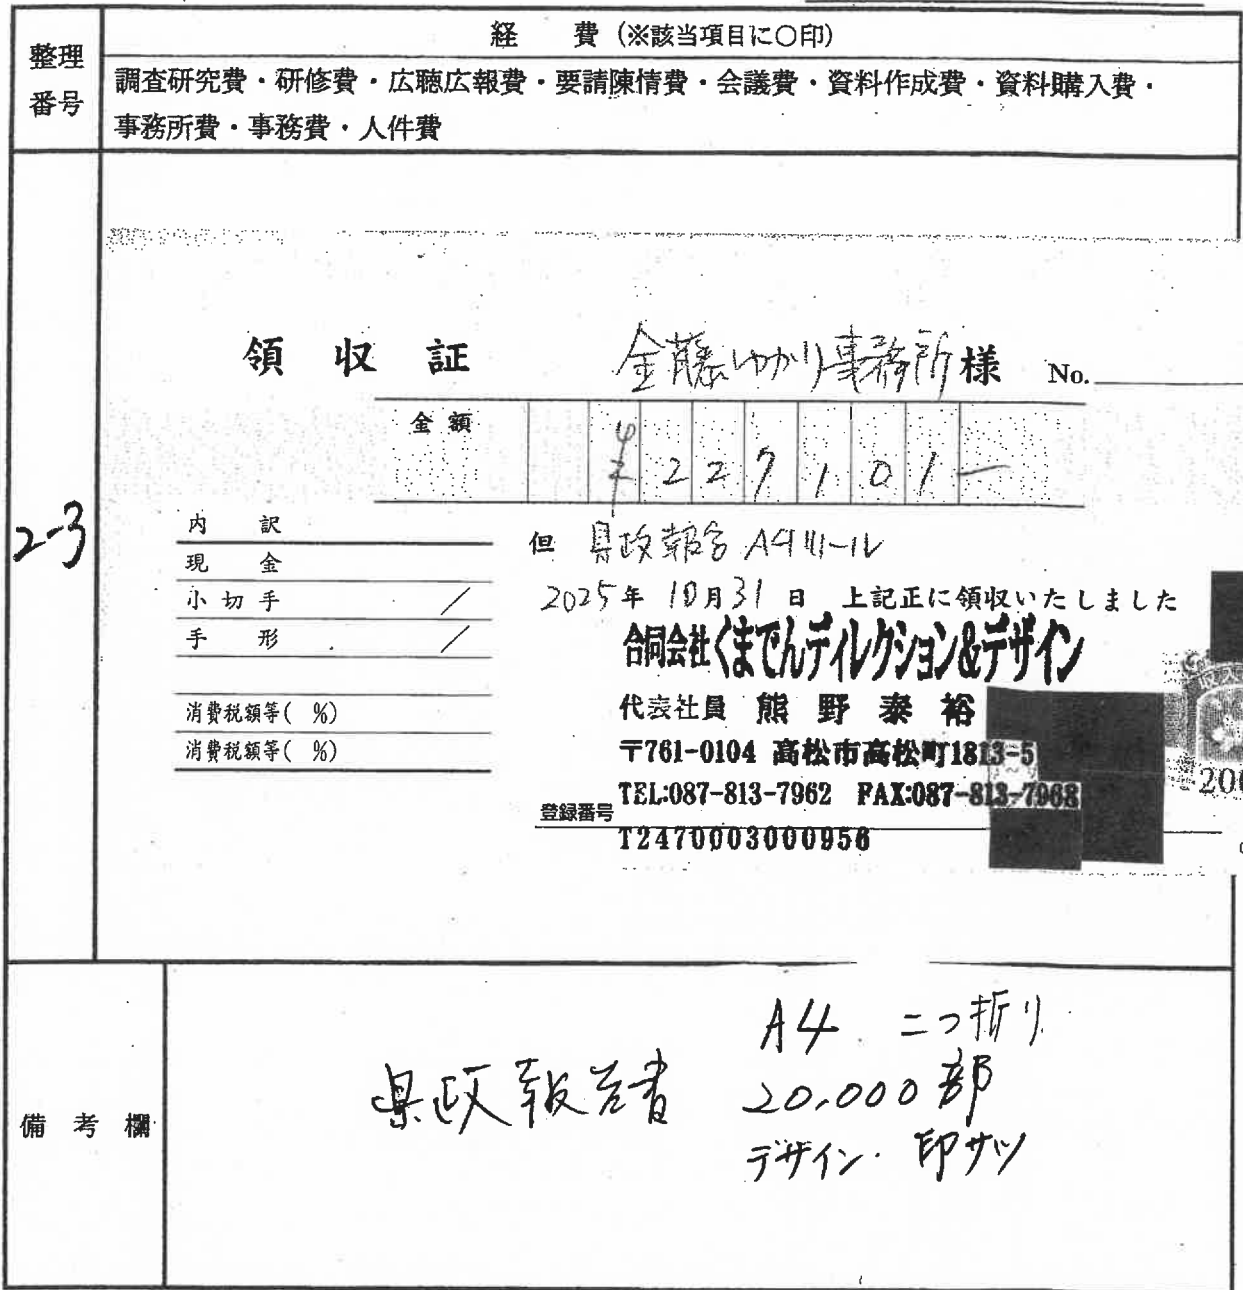 整理番号
経 費 (※該当項目に○印)
調査研究費・研修費・広聴広報費・要請陳情費・会議費・資料作成費・資料購入費・
事務所費・事務費・人件費
2-3
領収証 金藤ゆかり事務所様 No.
金額 ¥227101-
内訳
現金
小切手 /
手形 /
消費税額等( %)
消費税額等( %)
但 県政報告 A4
2025年10月31日 上記正に領収いたしました
合同会社くまでんディレクション&デザイン
代表社員 熊野泰裕
〒761-0104 高松市高松町1813-5
TEL:087-813-7962 FAX:087-813-7968
登録番号
T2470003000956
200
備考欄
県政報告書
A4 二つ折り
20,000部
デザイン・印サツ